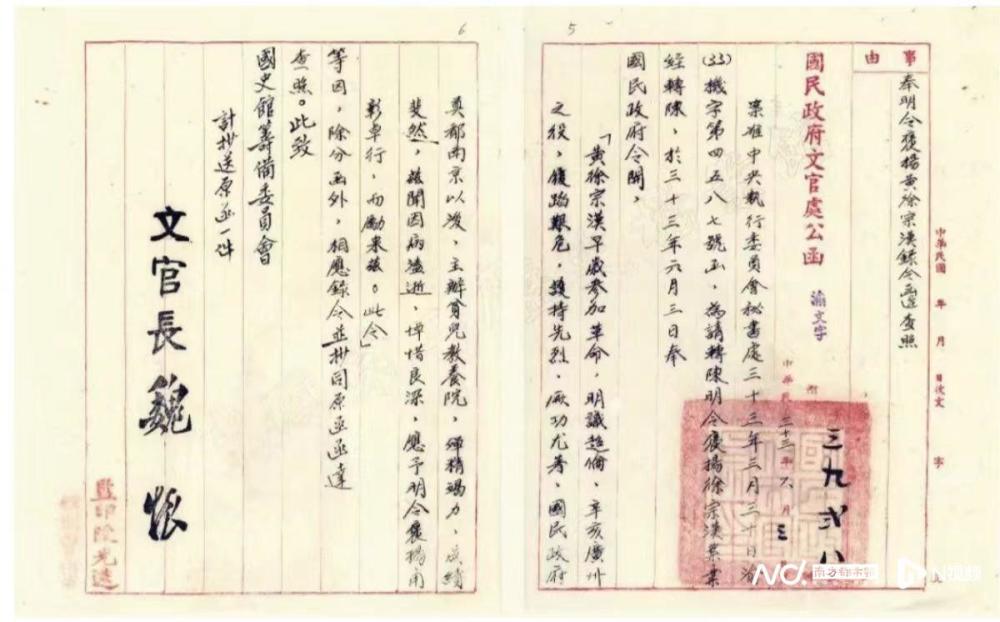 5
中華民國 年 月 日收文 字
事由
奉明令褒揚黃徐宗漢錄令函達查照
國民政府文官處公函
渝文字
三九弍八
中華民國三十三年六月三
案准中央執行委員會秘書處三十三年三月三十日渝
(33)機字第四五八七號函,為請轉陳明令褒揚徐宗漢案業
經轉陳,於三十三年六月三日奉
國民政府令開,
「黃徐宗漢早歲參加革命,明識超倫,辛亥廣州
之役,復蹈艱危,護持先烈,厥功尤著,國民政府
6
奠都南京以後,主辦貧兒教養院,殫精竭力,成績
斐然,茲聞因病溘逝,悼惜良深,應予明令褒揚用
彰卓行,而勵來茲。此令」
等因,除分函外,相應錄令並抄同原函函達
查照。此致
國史館籌備委員會
計抄送原函一件
文官長魏懷
監印陳光遠
南方都市報
N视频